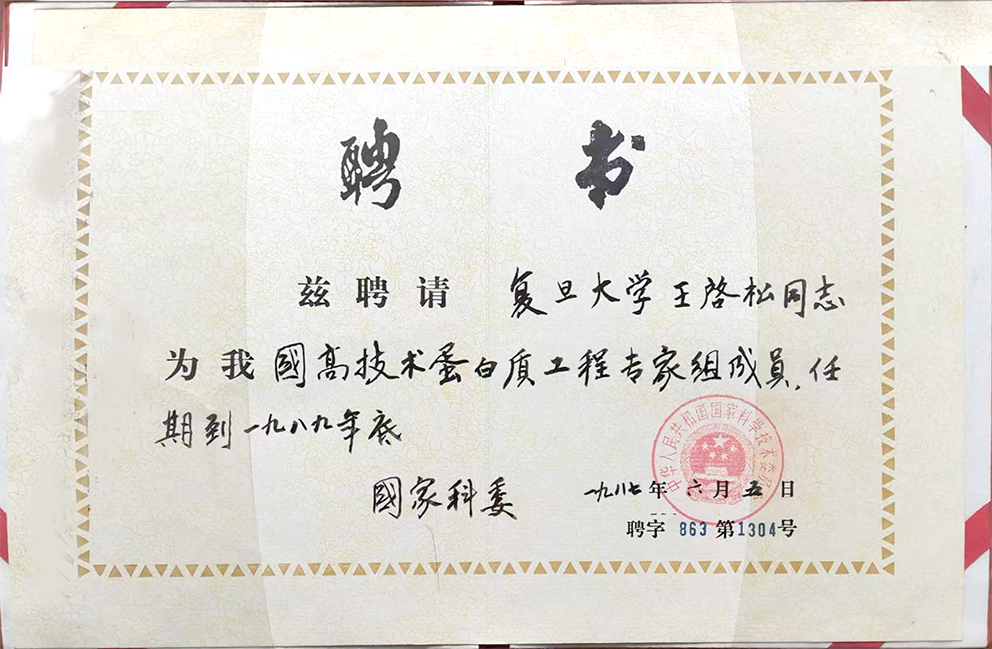 聘 书
兹聘请 复旦大学王启松同志
为我國高技术蛋白质工程专家组成員,任
期到一九八九年底
國家科委 一九八七年六月五日
中华人民共和国国家科学技术委员会
聘字 863 第1304号